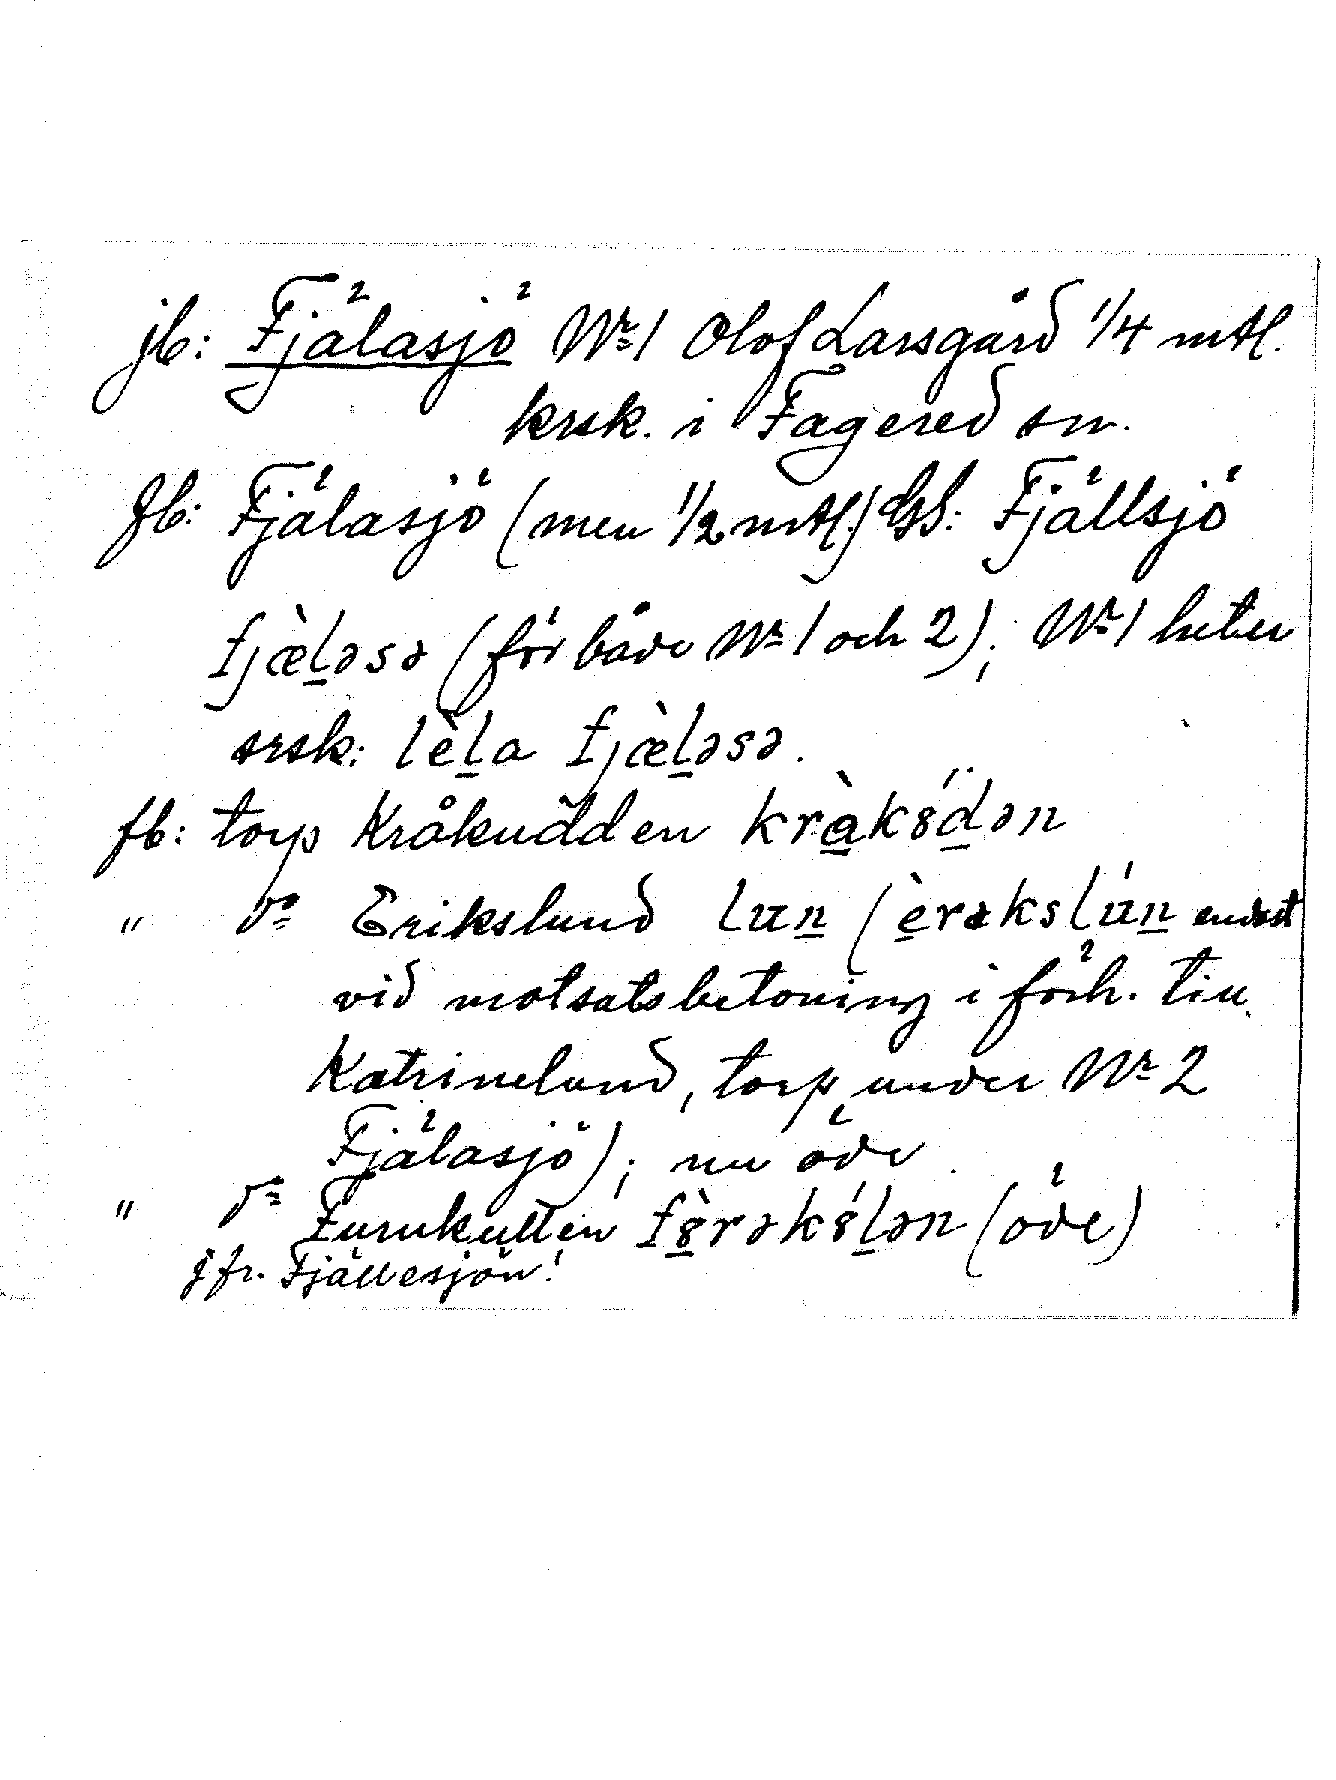 jb: Fjälasjö Nr 1 Olof Larsgård 1/4 mtl.
krsk. i Fagered sn.
fb: Fjälasjö (men 1/2 mtl.) GS: Fjällsjö
fjæ̀l̲əsə (för både Nr 1 och 2); Nr 1 heter
srsk: lèl̲a fjæ̀l̲əsə.
fb: torp Kråkudden krà̲k8́d̲ən
" do Erikslund lun̲ (è̲rəkslún̲ endast
vid motsatsbetoning i förh. till
Katrinelund, torp under Nr 2
Fjälasjö); nu öde
" do Furukullen f8̲̀rək8́l̲ən (öde)
jfr. Fjällesjön!